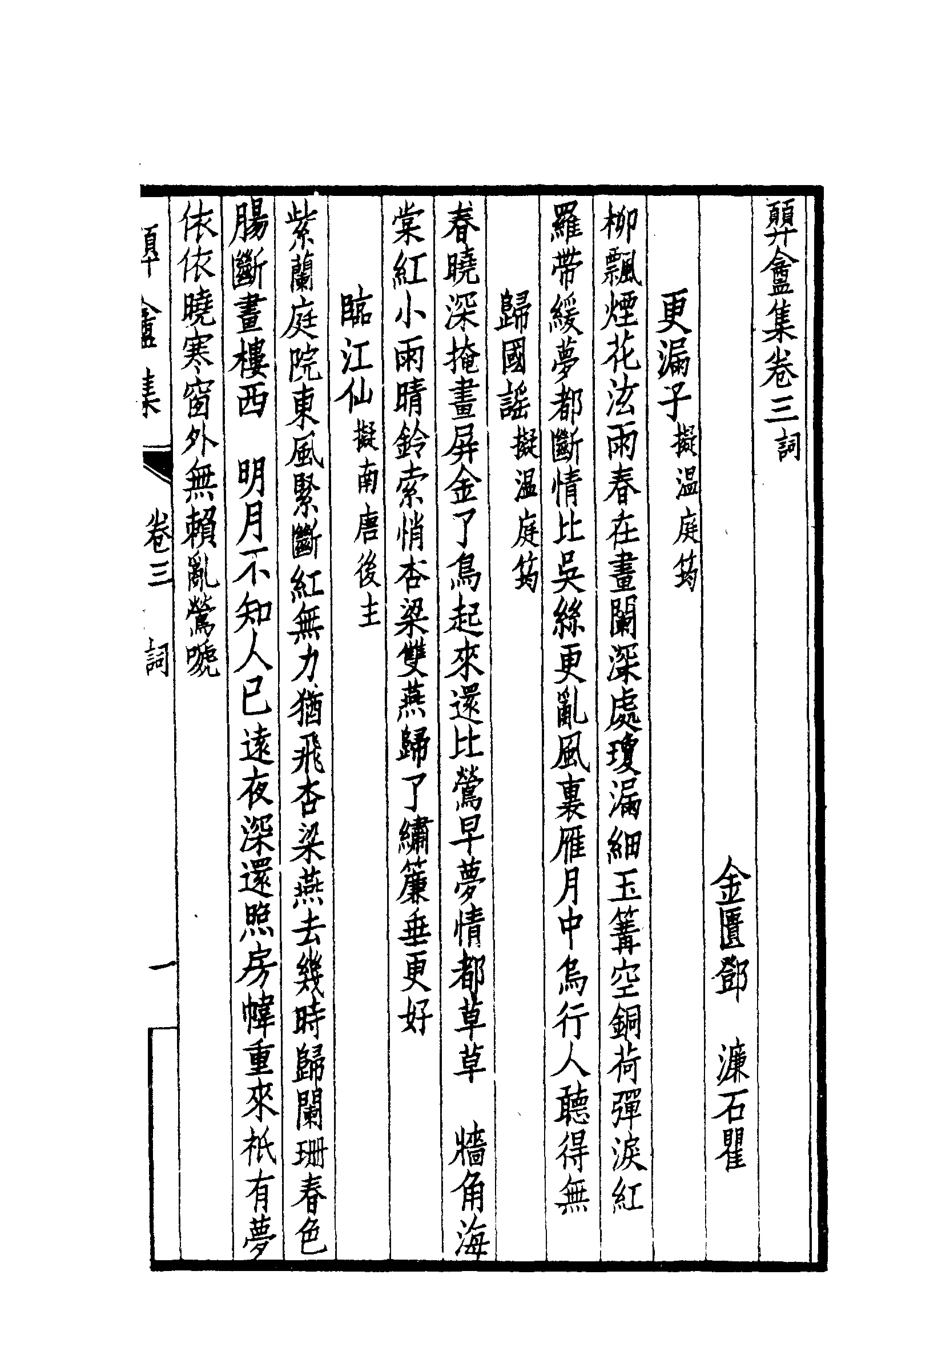 顨盦集卷三詞
金匱鄧　濂石瞿
更漏子擬温庭筠
柳飄煙花泫雨春在畫闌深處瓊漏細玉篝空銅荷彈淚紅
羅帶緩夢都斷情比吳絲更亂風裏雁月中烏行人聽得無
歸國謠擬温庭筠
春曉深掩畫屏金了鳥起來還比鶯早夢情都草草　牆角海
棠紅小雨晴鈴索悄杏梁雙燕歸了繡簾垂更好
臨江仙擬南唐後主
紫蘭庭院東風緊斷紅無力猶飛杏梁燕去幾時歸闌珊春色
腸斷畫樓西　明月不知人已遠夜深還照房幃重來祇有夢
依依曉寒窗外無賴亂鶯嗁
顨盦集　卷三　詞　一